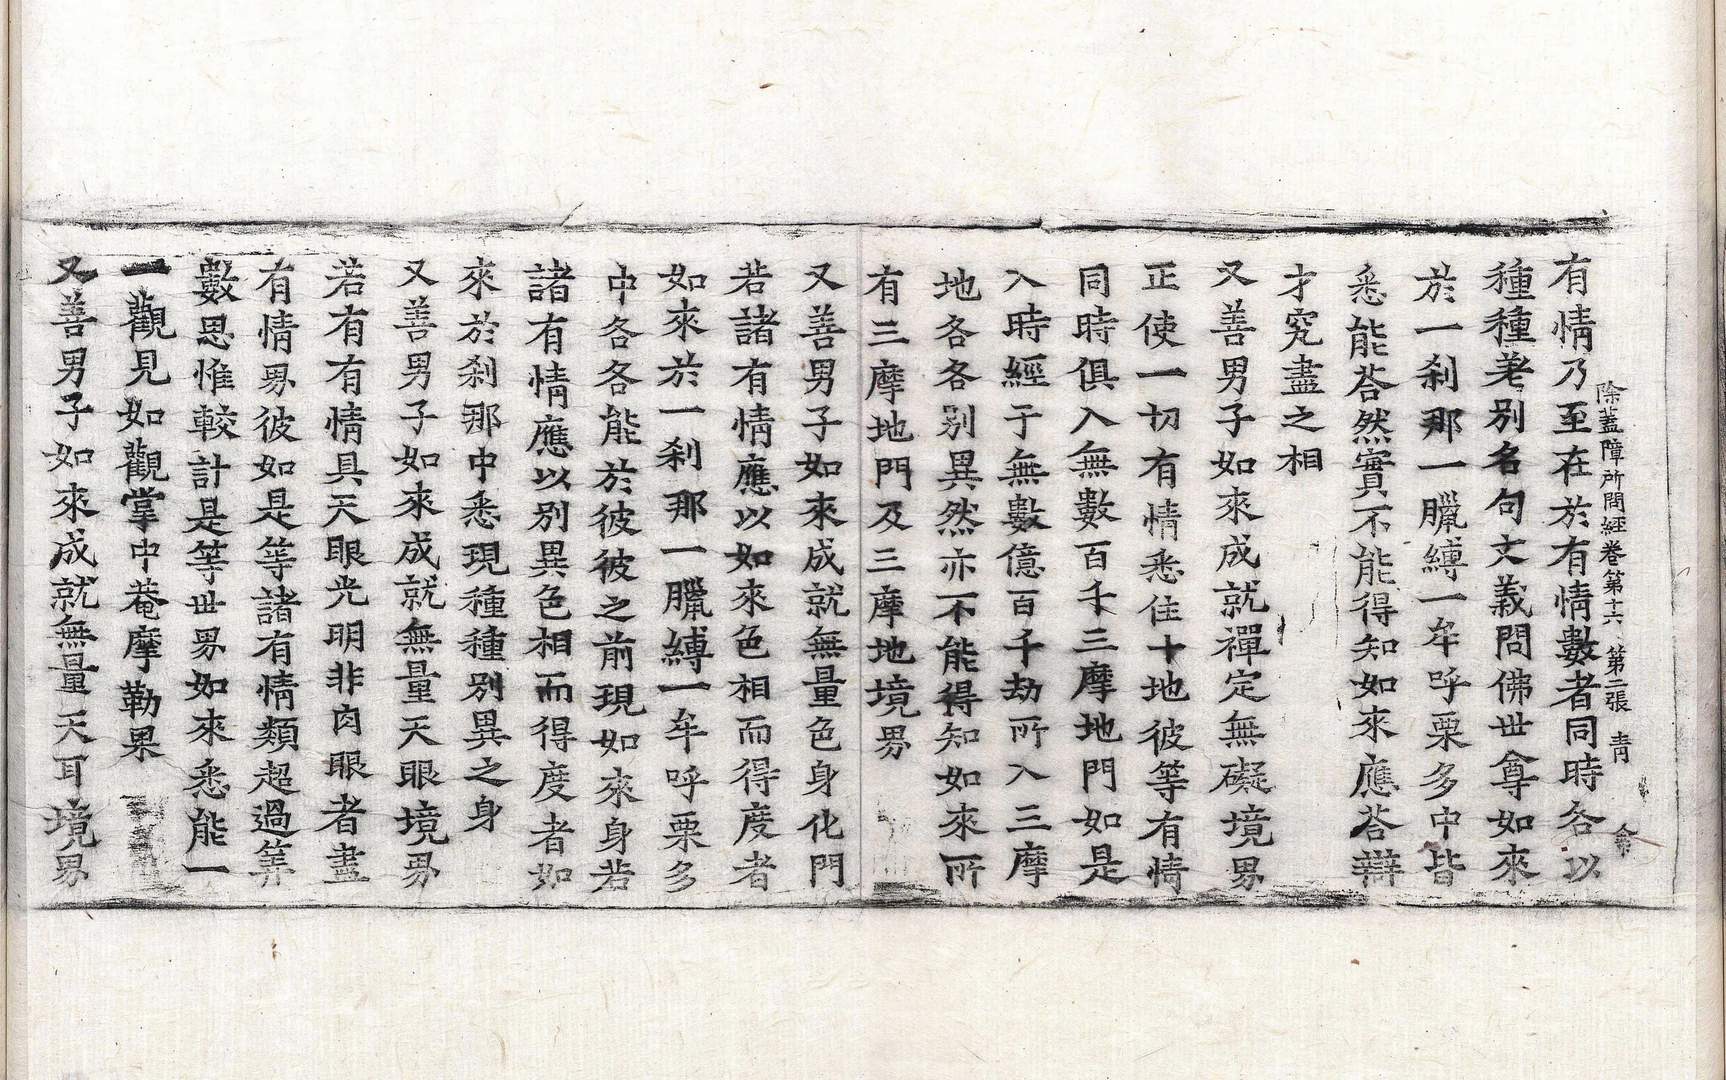 除蓋障所問經卷第十六　第二張　青
有情乃至在於有情數者同時各以
種種差別名句文義問佛世尊如來
於一剎那一臘縛一牟呼栗多中皆
悉能荅然實不能得知如來應荅辯
才究盡之相
又善男子如來成就禪定無礙境界
正使一切有情悉住十地彼等有情
同時俱入無數百千三摩地門如是
入時經于無數億百千劫所入三摩
地各各別異然亦不能得知如來所
有三摩地門及三摩地境界
又善男子如來成就無量色身化門
若諸有情應以如來色相而得度者
如來於一剎那一臘縛一牟呼栗多
中各各能於彼彼之前現如來身若
諸有情應以別異色相而得度者如
來於剎那中悉現種種別異之身
又善男子如來成就無量天眼境界
若有有情具天眼光明非肉眼者盡
有情界彼如是等諸有情類超過筭
數思惟較計是等世界如來悉能一
一觀見如觀掌中菴摩勒果
又善男子如來成就無量天耳境界